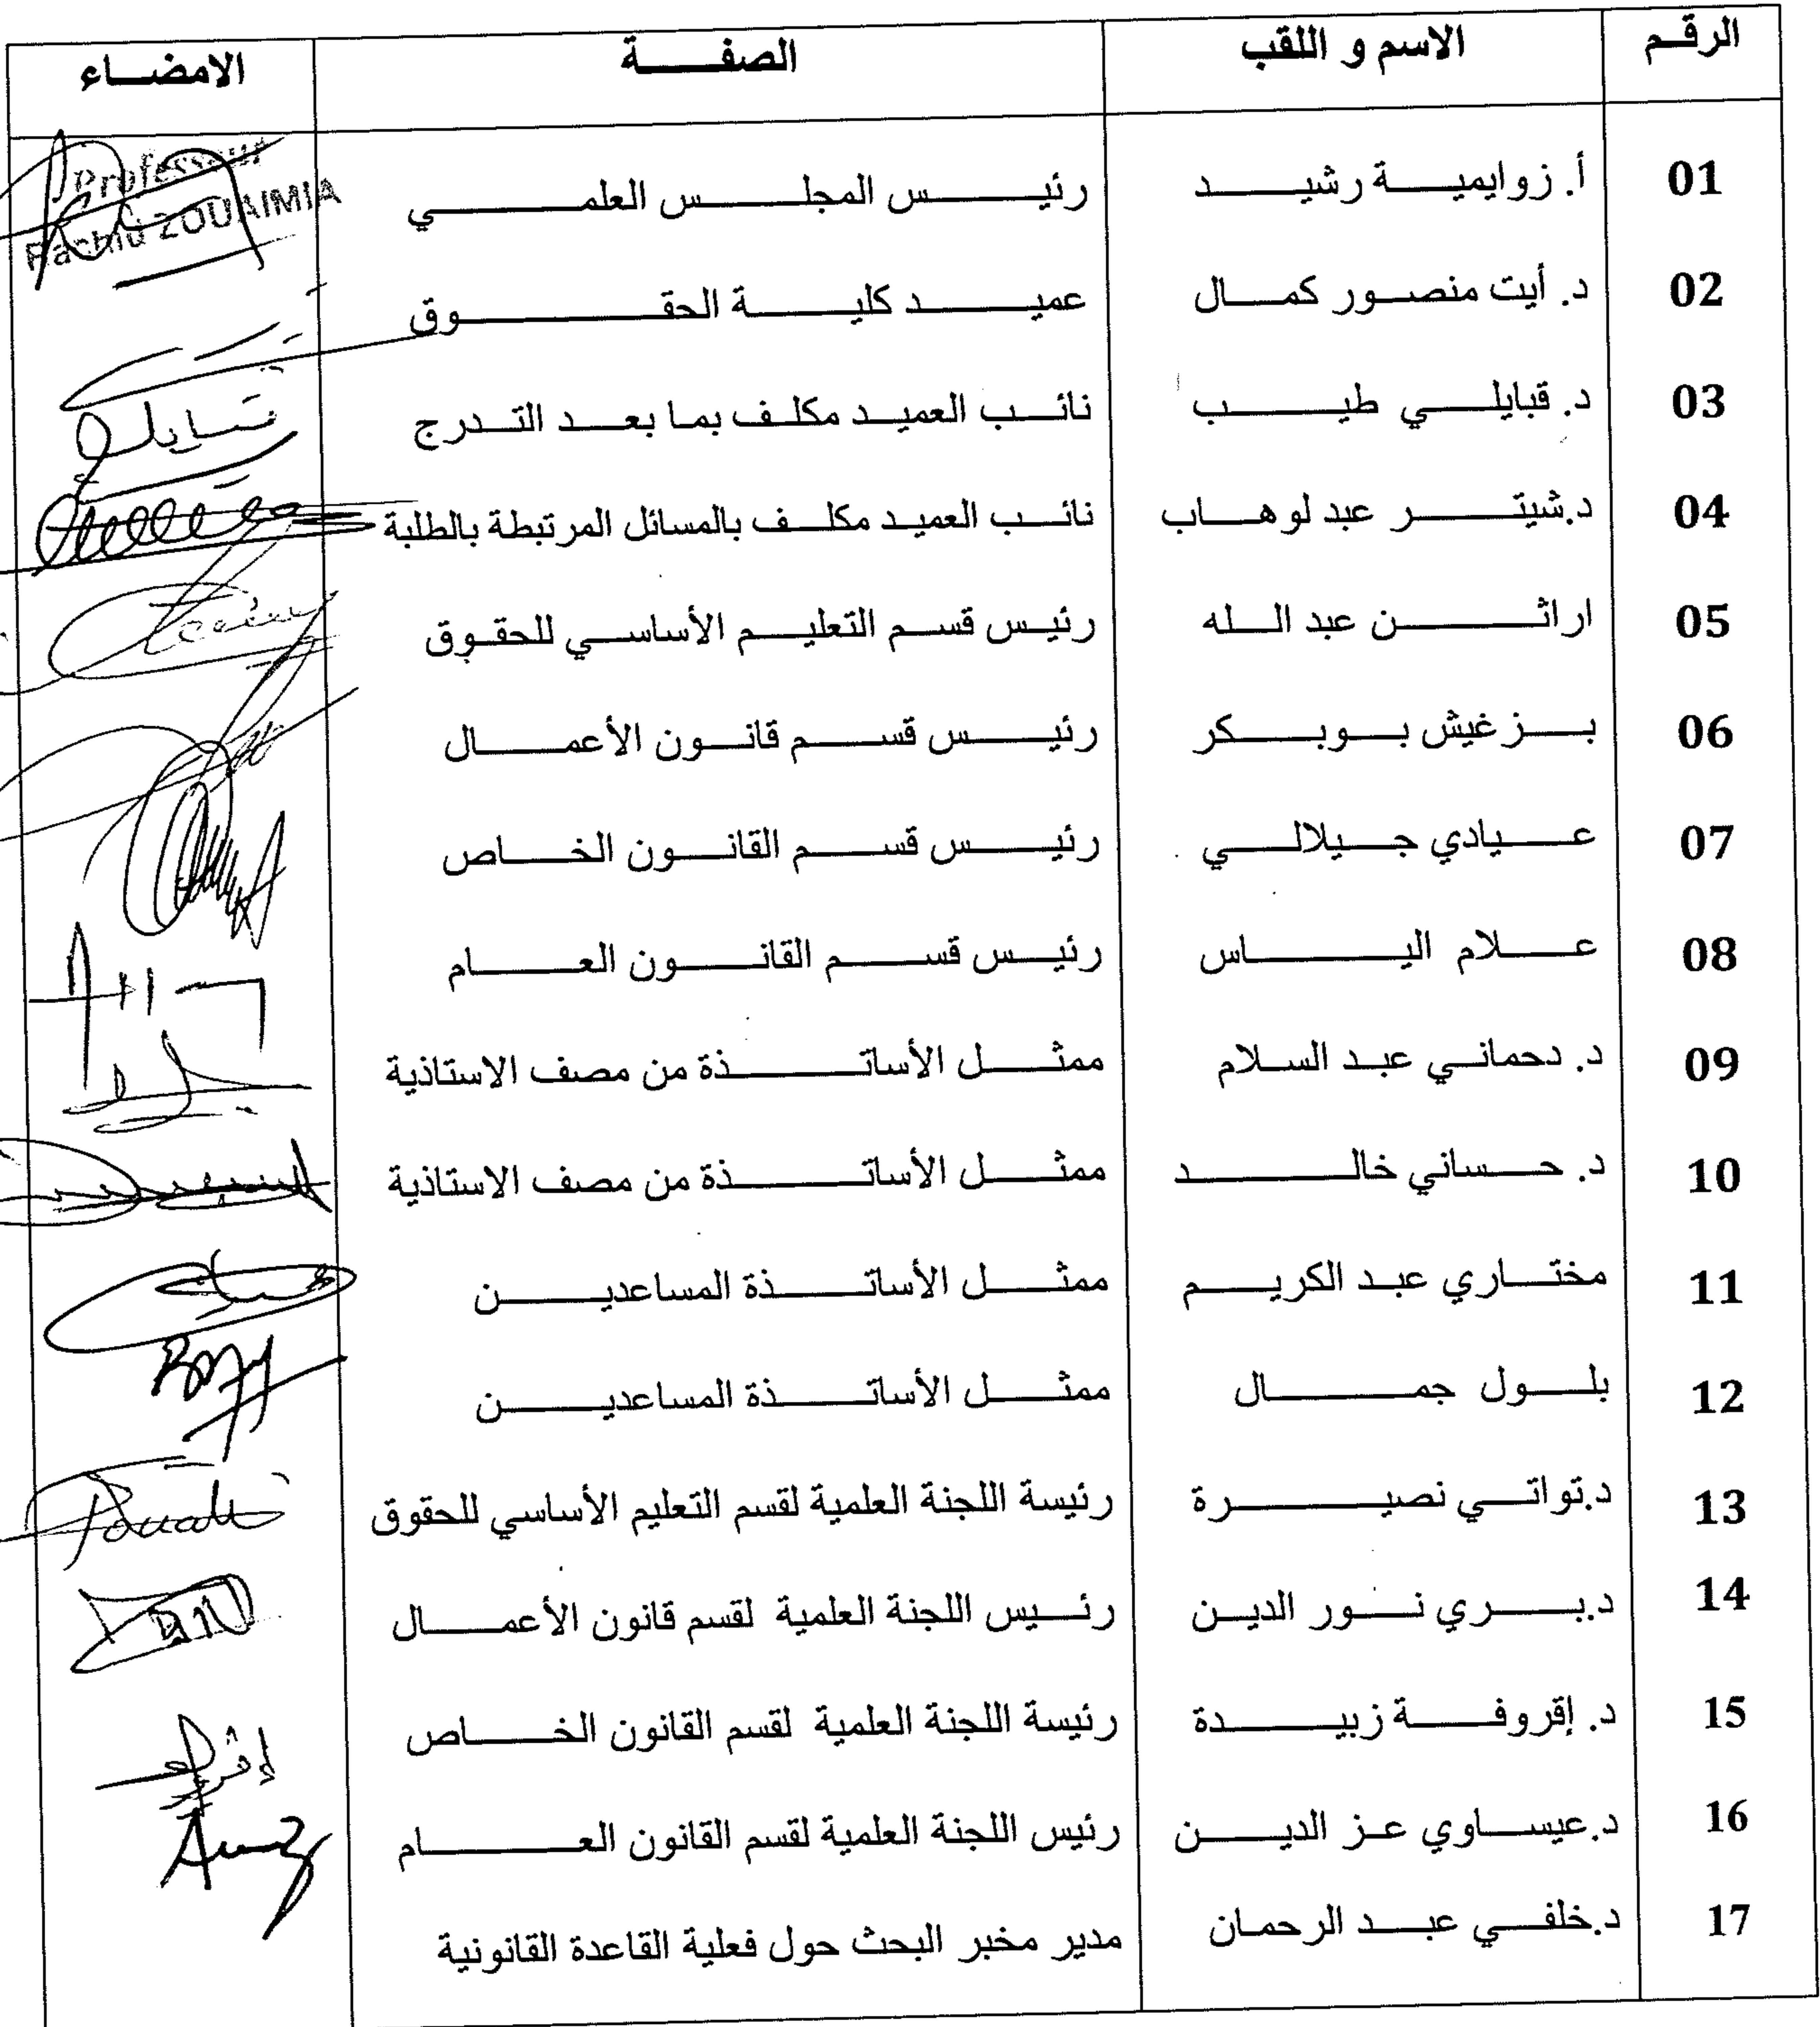 الرقم الاسم و اللقب الصفة الامضاء
01 أ. زوايمية رشيد رئيس المجلس العلمي Professeur
Rachid ZOUAIMIA
02 د. أيت منصور كمال عميد كلية الحقوق
03 د. قبايلي طيب نائب العميد مكلف بما بعد التدرج
04 د.شيتر عبد لوهاب نائب العميد مكلف بالمسائل المرتبطة بالطلبة
05 اراثن عبد الله رئيس قسم التعليم الأساسي للحقوق
06 بزغيش بوبكر رئيس قسم قانون الأعمال
07 عيادي جيلالي رئيس قسم القانون الخاص
08 علام الياس رئيس قسم القانون العام
09 د. دحماني عبد السلام ممثل الأساتذة من مصف الاستاذية
10 د. حساني خالد ممثل الأساتذة من مصف الاستاذية
11 مختاري عبد الكريم ممثل الأساتذة المساعدين
12 بلول جمال ممثل الأساتذة المساعدين
13 د.تواتي نصيرة رئيسة اللجنة العلمية لقسم التعليم الأساسي للحقوق
14 د.بري نور الدين رئيس اللجنة العلمية لقسم قانون الأعمال
15 د. إقروفة زبيدة رئيسة اللجنة العلمية لقسم القانون الخاص
16 د.عيساوي عز الدين رئيس اللجنة العلمية لقسم القانون العام
17 د.خلفي عبد الرحمان مدير مخبر البحث حول فعلية القاعدة القانونية